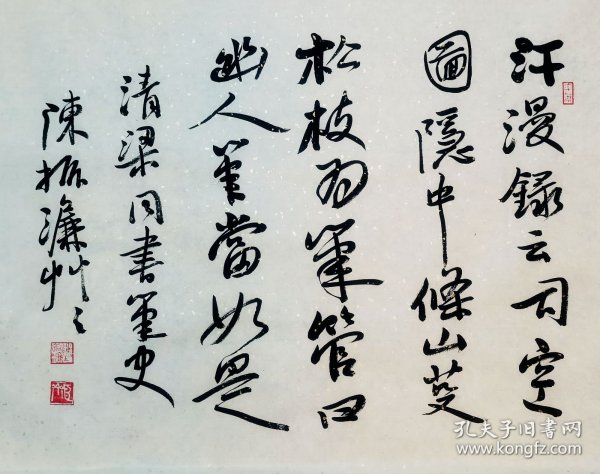 汗漫録云司空
圖隱中條山芟
松枝为筆管曰
幽人筆當如是
清梁同書筆史
陳振濂艸々
孔夫子旧書网
www.kongfz.com